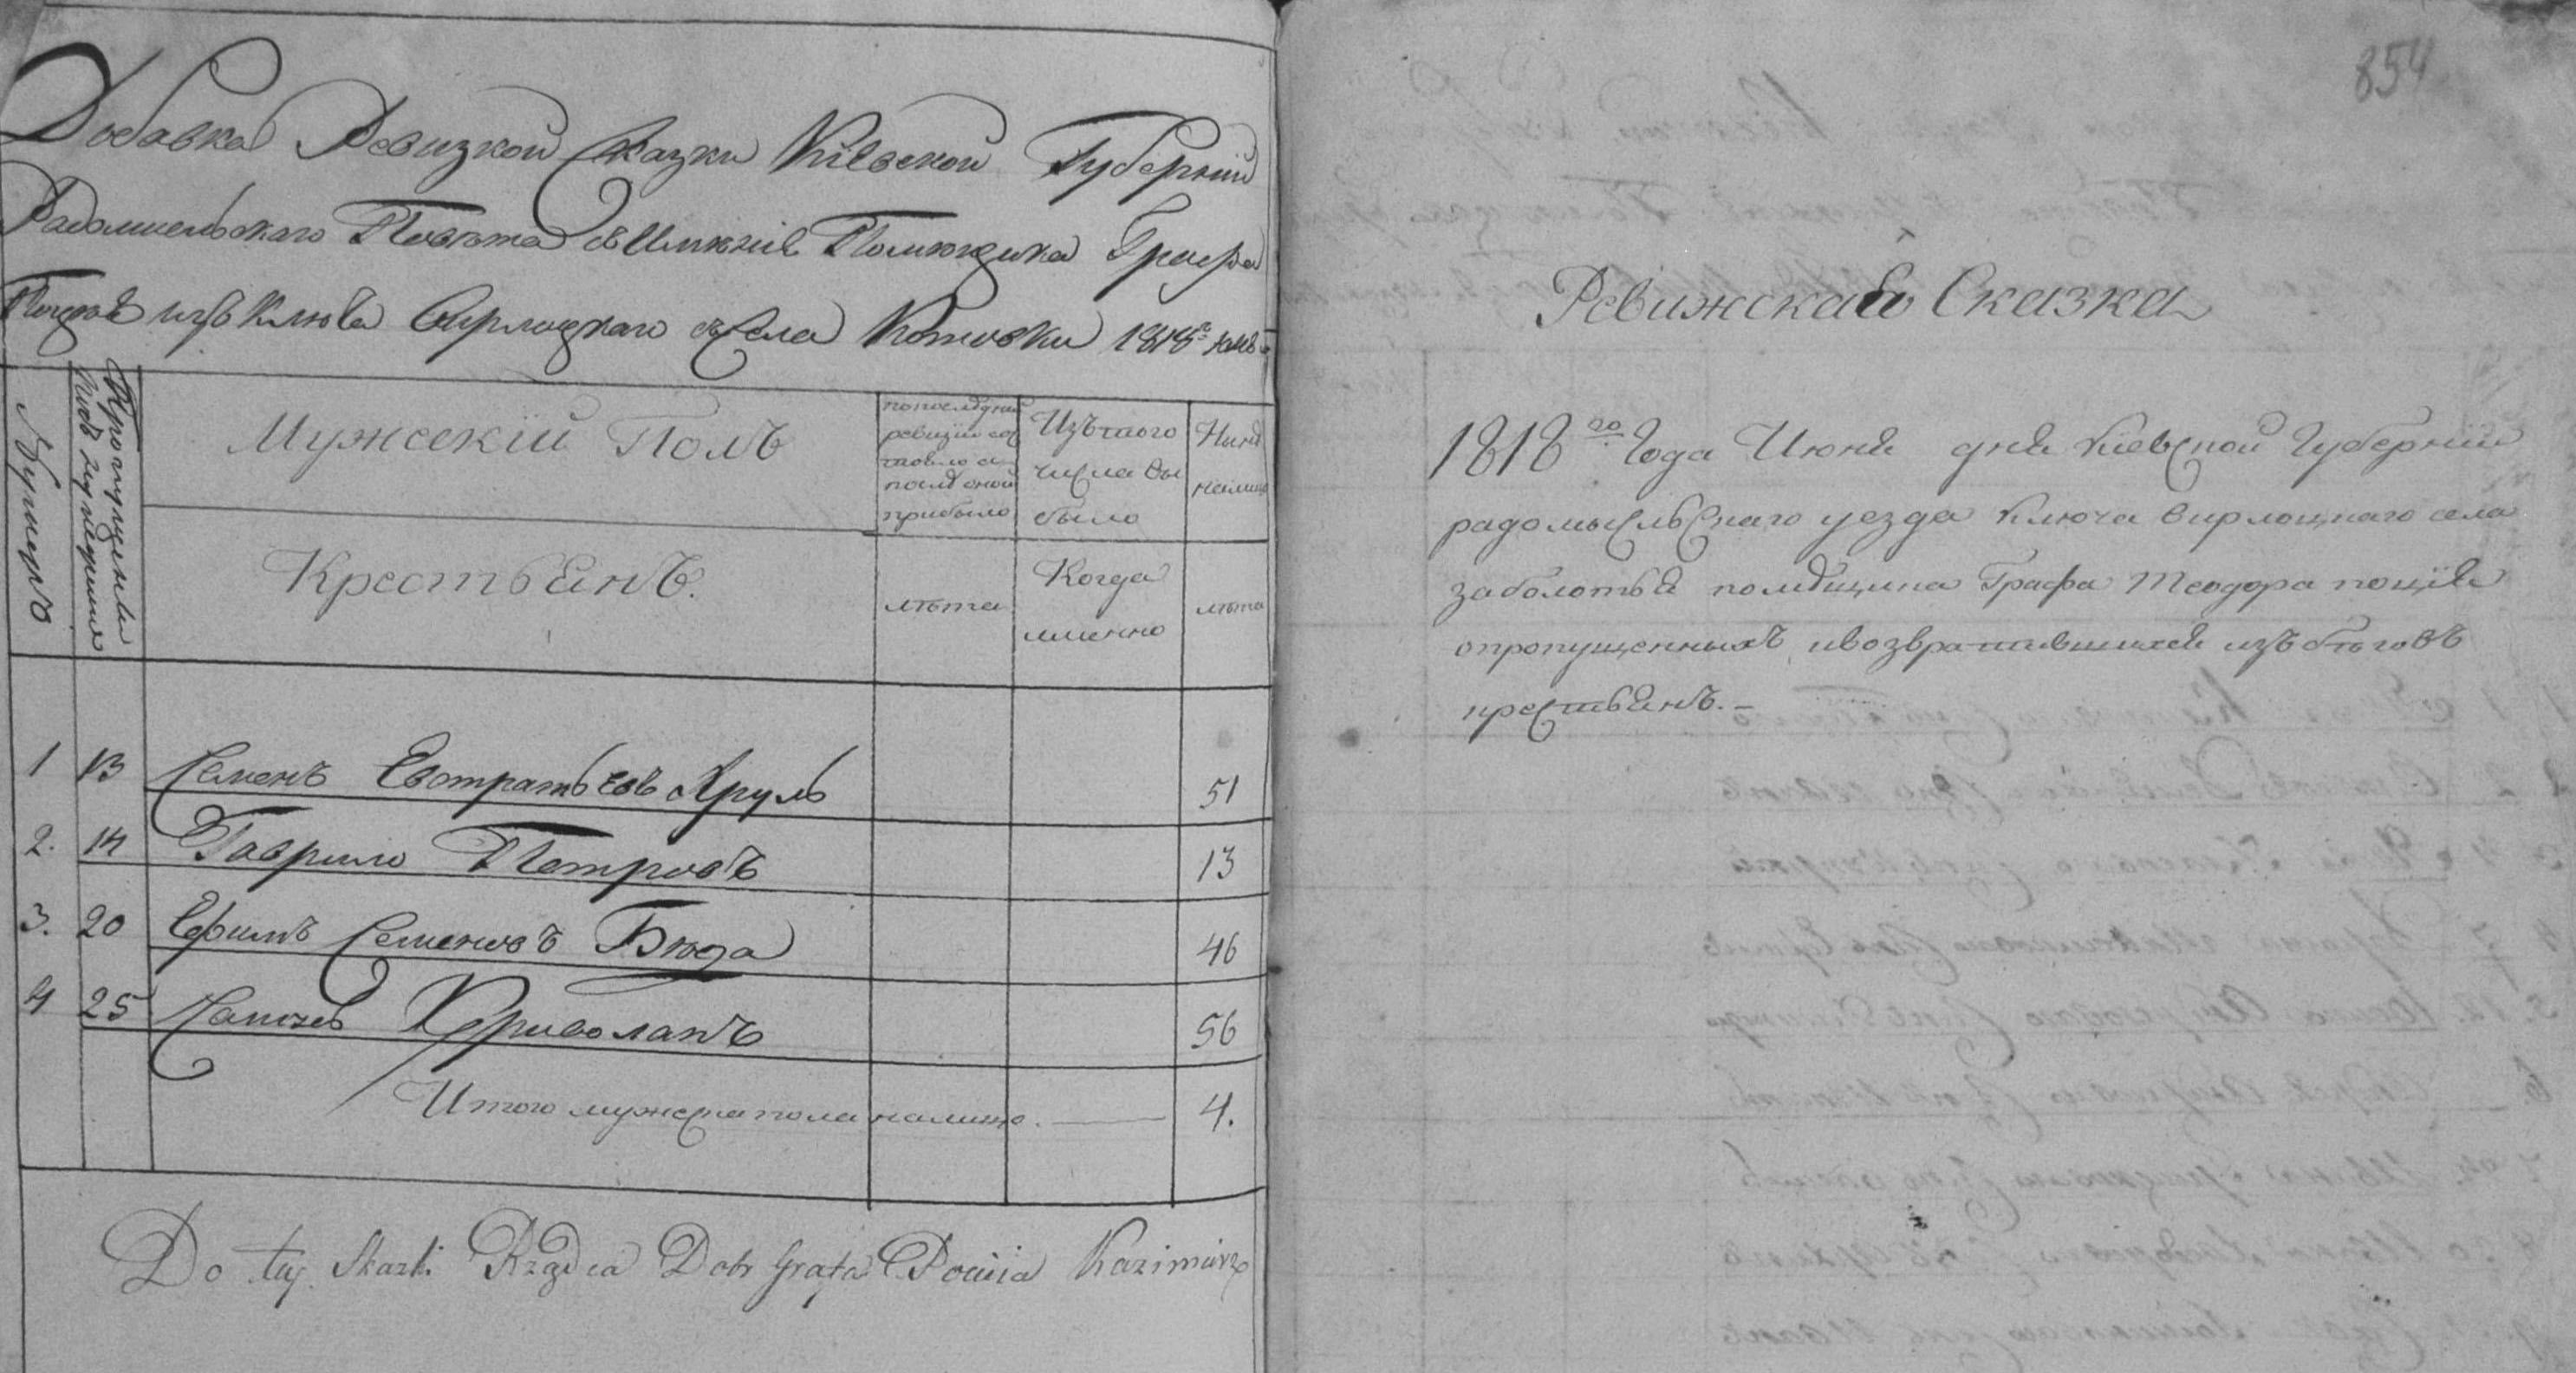 Добавка Ревизкой Сказки Кіевской Губерніи
Радомисльскаго Повѣта въ Имѣніе Помющика Графа
изъ Ключа Вирлоцкаго Села Котовки 1818го
Нумеръ
Пропущенны
Подъ нумерами
Мужескій Полъ
по последней ревизіи состояло и после оной прибыло
Изътаого числа выбыло
Нинѣ налицо
Крестьянъ.
лѣта
Когда именно
лѣта
1 13 Семенъ Евстратьевъ Круль 51
2. 14 Гаврило Петровъ 13
3. 20 Ефимъ Семеновъ Бѣгда 46
4 25 Криволапъ 56
Итого мужеска пола налицо. — 4.
Do tey Skazki Rządca Dobr Grafa Pocieia Kazimierz
854
Ревижская Сказка
1818го Года Июня дня Кіевской Губерніи
радомысльскаго уезда Ключа вирлоцкаго села
заболотья помѣщика Графа Теодора поцѣя
опропущенныхъ ивозвратившихся изъ бѣговъ
крестьянъ.–